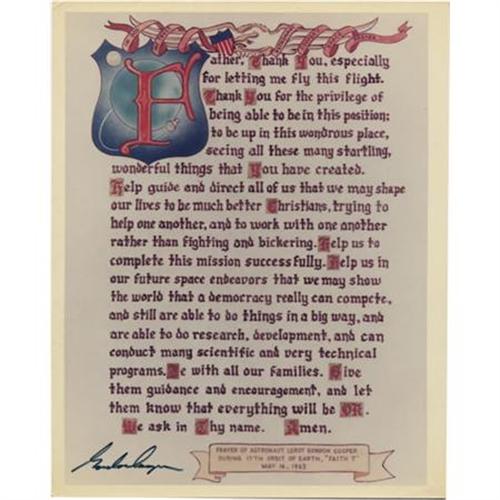 Father, Thank You, especially
for letting me fly this flight.
Thank You for the privilege of
being able to be in this position;
to be up in this wondrous place,
seeing all these many startling,
wonderful things that You have created.
Help guide and direct all of us that we may shape
our lives to be much better Christians, trying to
help one another, and to work with one another
rather than fighting and bickering. Help us to
complete this mission successfully. Help us in
our future space endeavors that we may show
the world that a democracy really can compete,
and still are able to do things in a big way, and
are able to do research, development, and can
conduct many scientific and very technical
programs. Be with all our families. Give
them guidance and encouragement, and let
them know that everything will be OK.
We ask in Thy name. Amen.
PRAYER OF ASTRONAUT LEROY GORDON COOPER
DURING 17TH ORBIT OF EARTH, "FAITH 7"
MAY 16, 1963